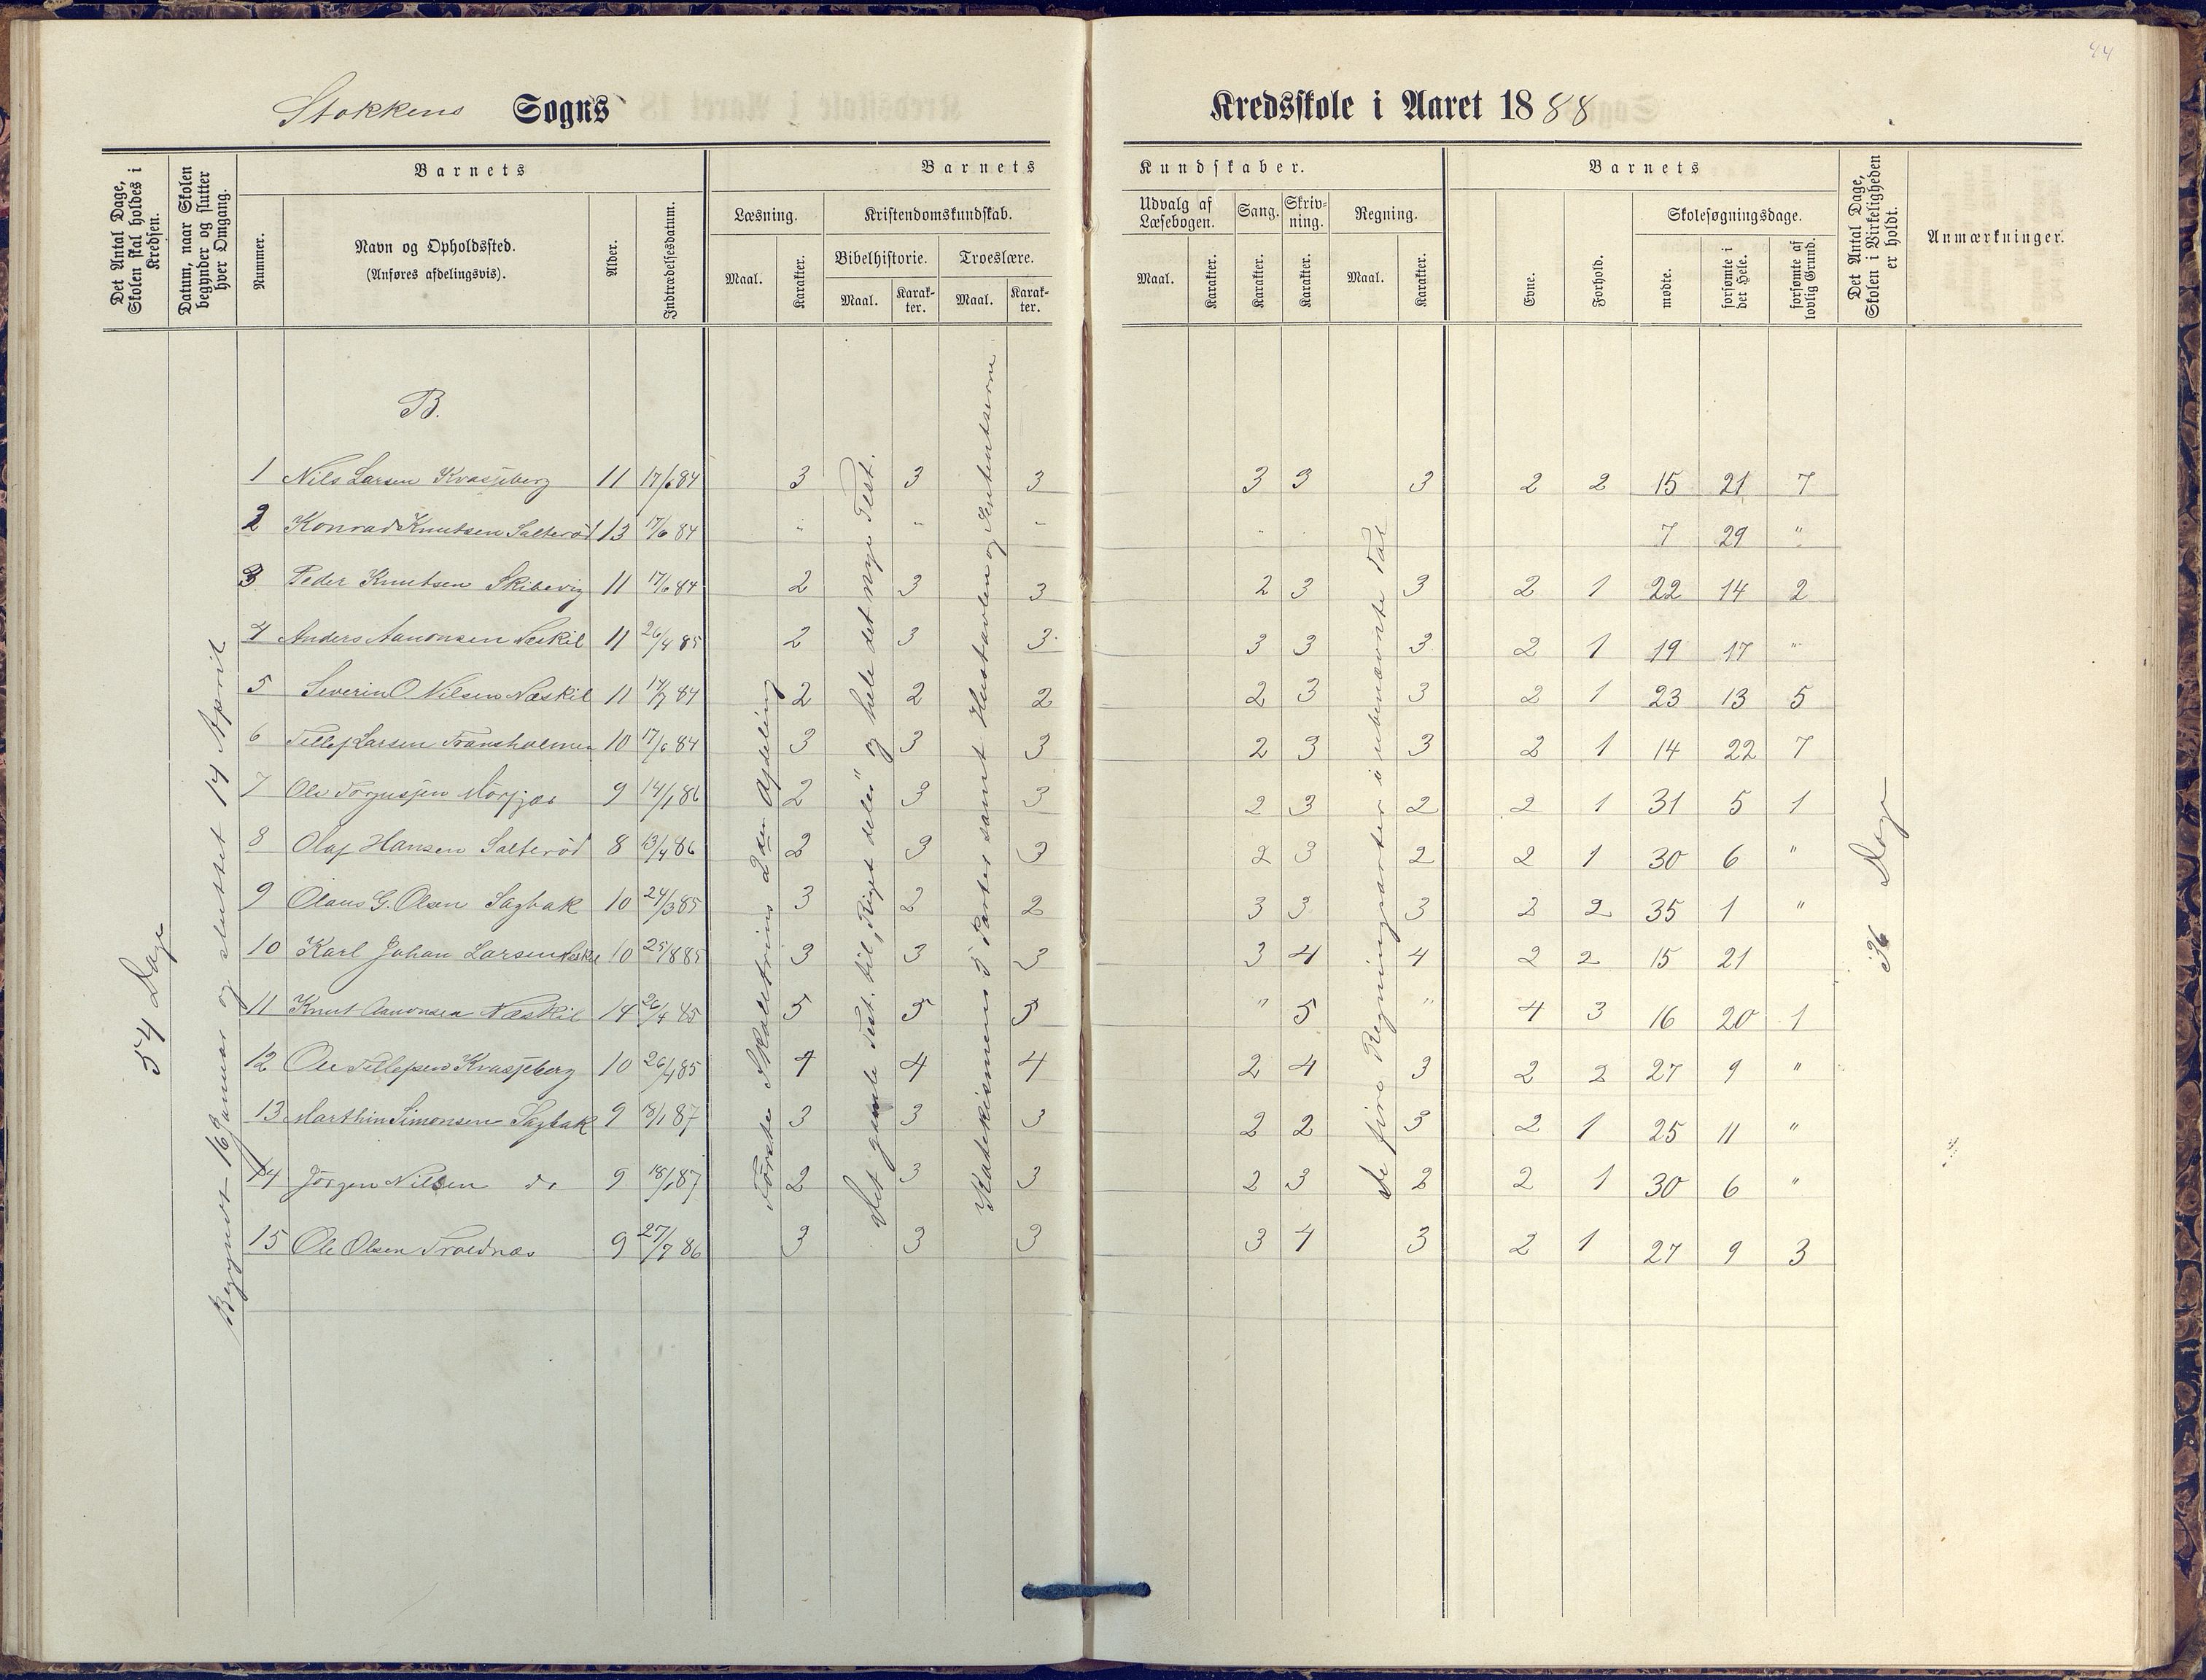 44
Stokkens Sogns Kredsskole i Aaret 1888
Det Antal Dage, Skolen skal holdes i Kredsen.
Datum, naar Skolen begynder og slutter hver Omgang.
Barnets
Nummer.
Navn og Opholdssted.
(Anføres afdelingsvis).
Alder.
Indtrædelsesdatum.
Barnets Kundskaber.
Læsning.
Maal.
Karakter.
Kristendomskundskab.
Bibelhistorie.
Maal.
Karakter.
Troeslære.
Maal.
Karakter.
Udvalg af Læsebogen.
Maal.
Karakter.
Sang.
Karakter.
Skrivning.
Karakter.
Regning.
Maal.
Karakter.
Barnets
Evne.
Forhold.
Skolesøgningsdage.
mødte.
forsømte i det Hele.
forsømte af lovlig Grund.
Det Antal Dage, Skolen i Virkeligheden er holdt.
Anmærkninger.
54 Dage
Begyndt 16 Januar og sluttet 14 April
Første Skoletrins 2den Afdeling
Det gamle Test. til "Riget deles" og hele det nye Test.
Katekismens 5 Parter samt Hustavlen og Sententserne
De fire Regningsarter i ubenævnte Tal
36 Dage
B.
1 Nils Larsen Kvasjeberg 11 17/6 84 3 3 3 3 3 3 2 2 15 21 7
2 Konrad Knutsen Salterød 13 17/6 84 " " " " 7 29 "
3 Peder Knutsen Skibevig 11 17/6 84 2 3 3 2 3 3 2 1 22 14 2
4 Anders Aanonsen Næskil 11 26/4 85 2 3 3 3 3 3 2 1 19 17 "
5 Severin O. Nilsen Næskil 11 17/7 84 2 2 2 2 3 3 2 1 23 13 5
6 Tellef Larsen 10 17/6 84 3 3 3 2 3 3 2 1 14 22 7
7 Ole 9 14/1 86 2 3 3 2 3 2 2 1 31 5 1
8 Olaf Hansen Salterød 8 13/4 86 2 3 3 2 3 2 2 1 30 6 "
9 Olaus G. Olsen Sagbak 10 24/3 85 3 2 2 3 3 3 2 2 35 1 "
10 Karl Johan Larsen 10 25/8 85 3 3 3 3 4 4 2 2 15 21
11 Knut Aanonsen Næskil 14 26/4 85 5 5 5 " 5 " 4 3 16 20 1
12 Ole Tellefsen Kvasjeberg 10 26/4 85 4 4 4 2 4 3 2 2 27 9 "
13 Marthin Simonsen Sagbak 9 18/1 87 3 3 3 2 2 3 2 1 25 11 "
14 Jörgen Nilsen do 9 18/1 87 2 3 3 2 3 2 2 1 30 6 "
15 Ole Olsen Troldnæs 9 27/7 86 3 3 3 3 4 3 2 1 27 9 3